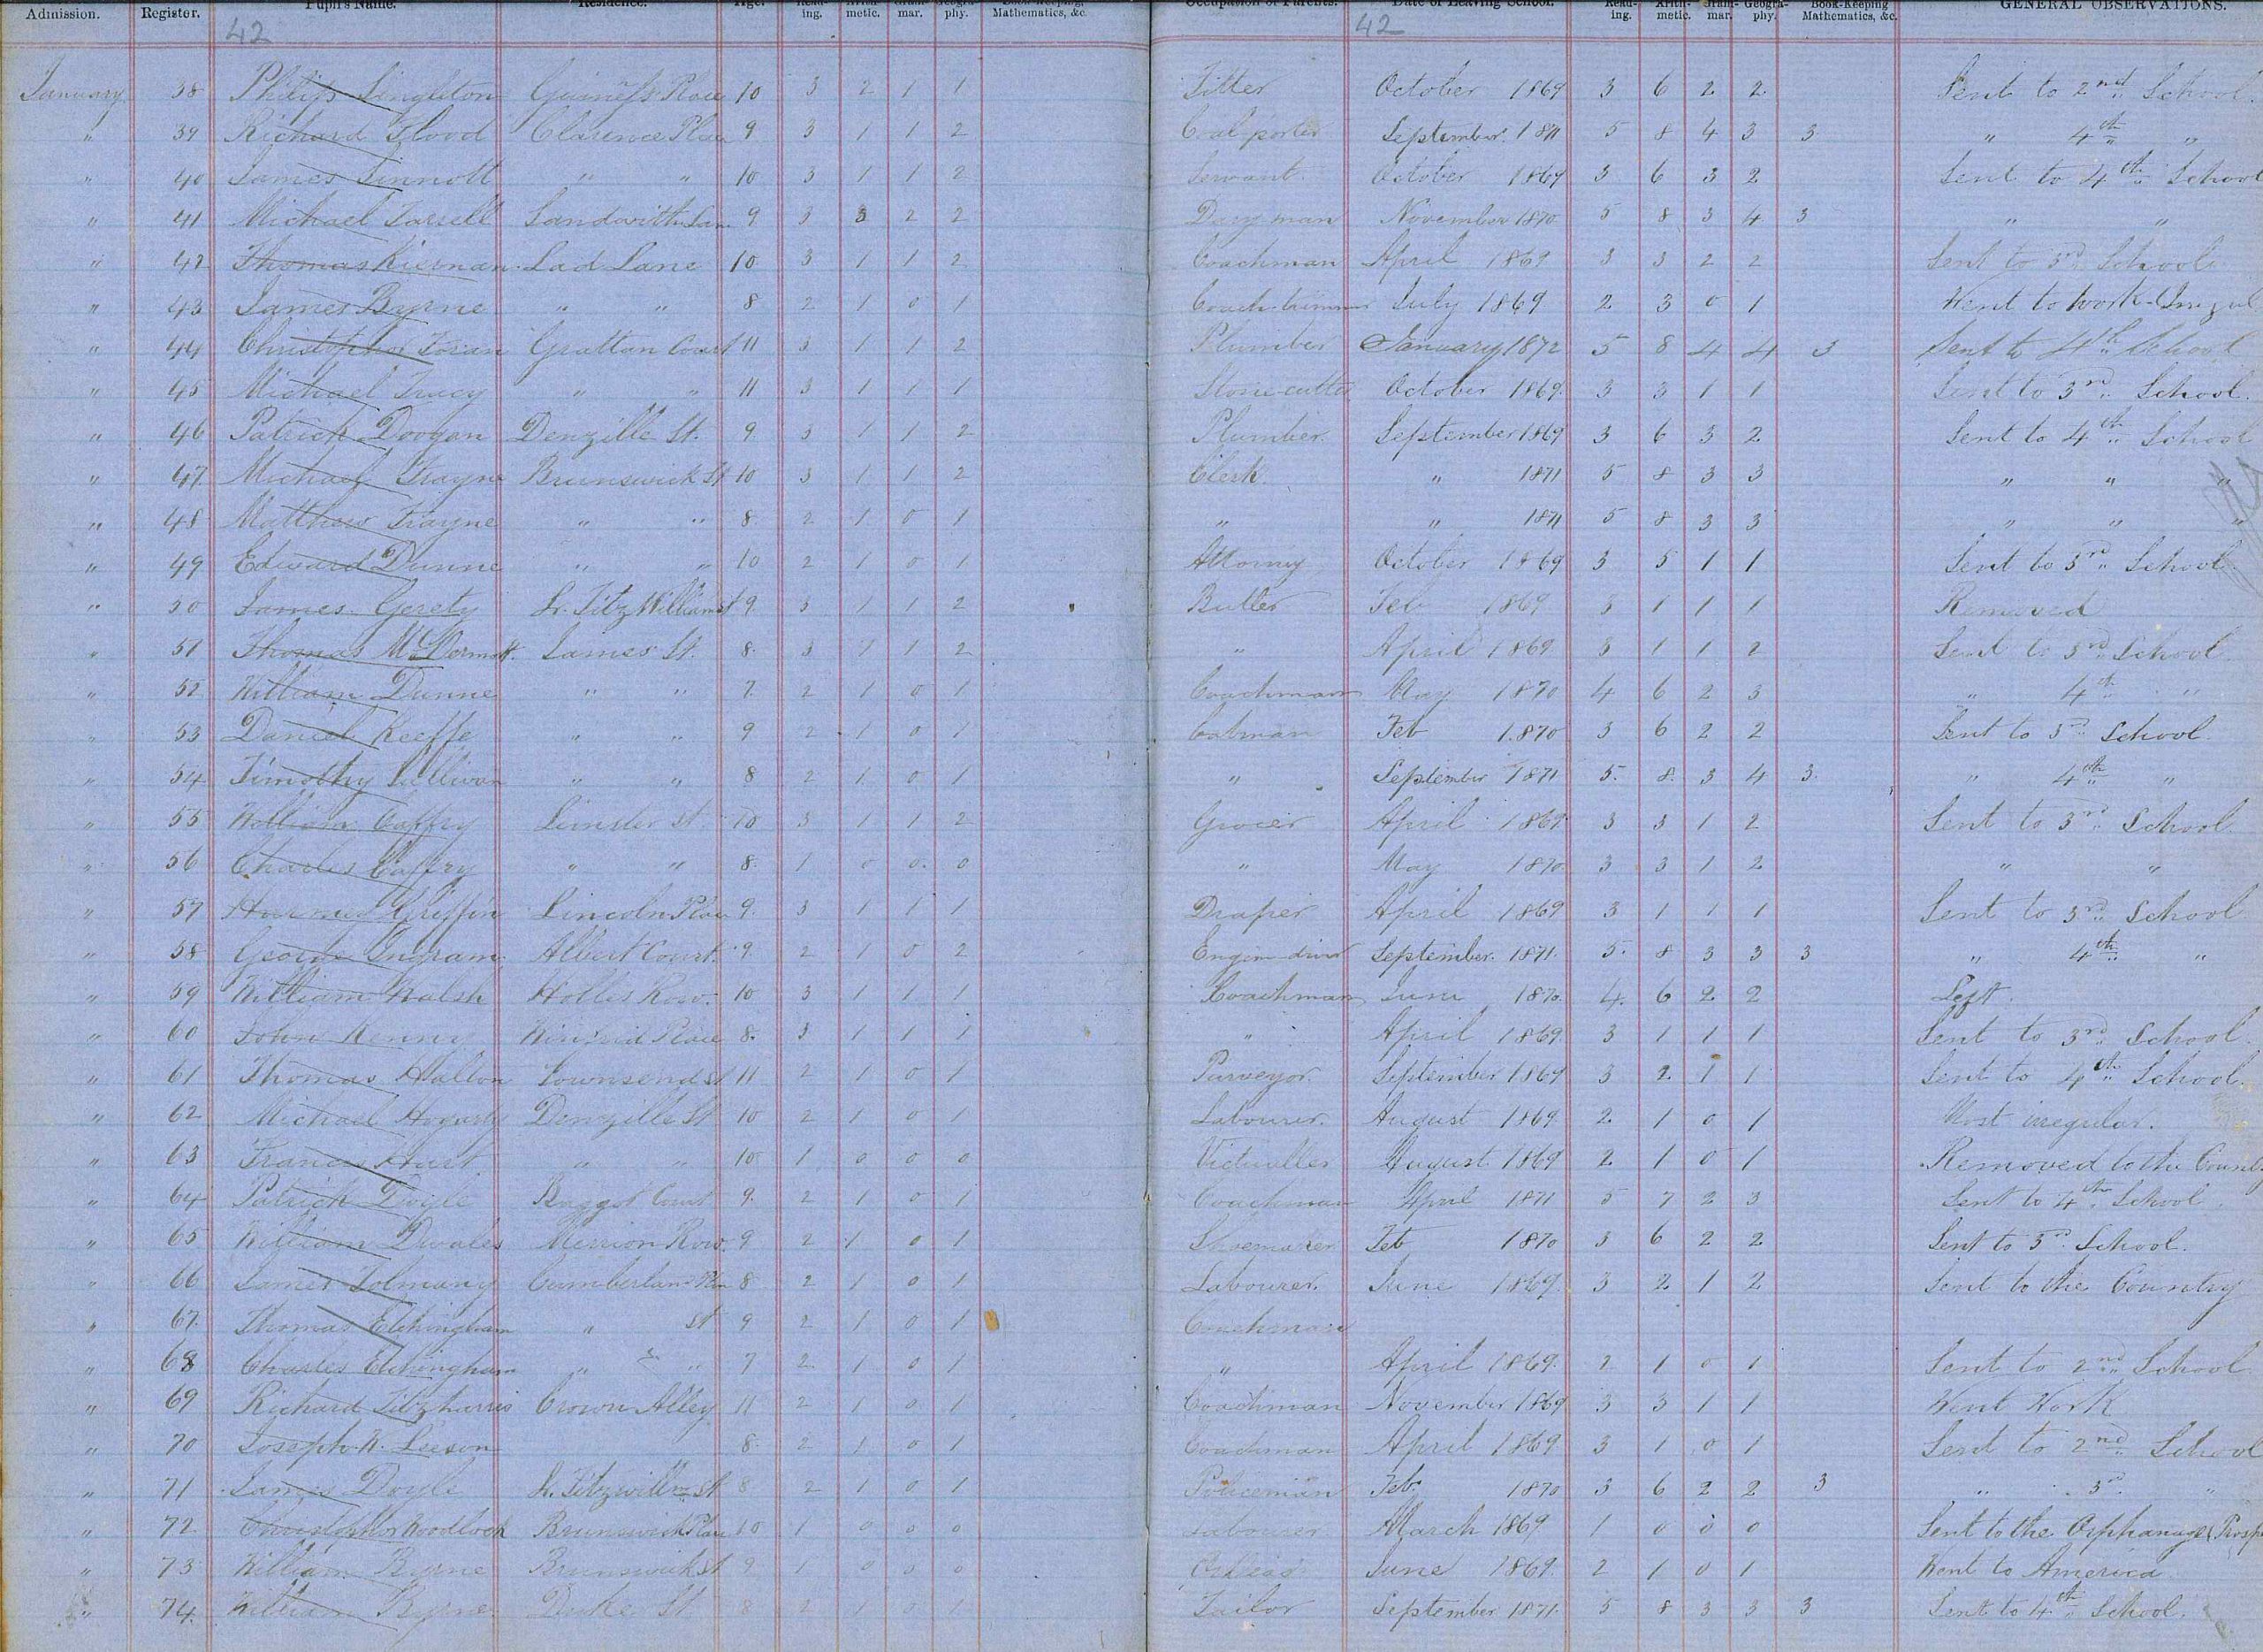 Admission. Register. Pupil's Name. Residence. Age. Read- ing. Arith- metic. Gram- mar. Geogra- phy. Book-Keeping, Mathematics, &c. Occupation of Parents. Date of Leaving School. Read- ing. Arith- metic. Gram- mar. Geogra- phy. Book-Keeping Mathematics, &c. GENERAL OBSERVATIONS.
42 42
January 38 Philip Singleton Guiness Place 10 3 2 1 1 Fitter October 1869 3 6 2 2 Sent to 2nd School.
" 39 Richard Flood Clarence Place 9 3 1 1 2 Coal porter September 1871 5 8 4 3 3 " 4th "
" 40 James Sinnott " " 10 3 1 1 2 Servant October 1869 3 6 3 2 Sent to 4th School
" 41 Michael Farrell Sandwith Lane 9 3 3 2 2 Dairy man November 1870 5 8 3 4 3 " "
" 42 Thomas Kiernan Lad Lane 10 3 1 1 2 Coachman April 1869 3 3 2 2 Sent to 3rd School
" 43 James Byrne " " 8 2 1 0 1 Coach trimmer July 1869 2 3 0 1 Went to work
" 44 Christopher Foran Grattan Court 11 3 1 1 2 Plumber January 1872 5 8 4 4 3 Sent to 4th School
" 45 Michael Tracy " " 11 3 1 1 1 Stone-cutter October 1869 3 3 1 1 Sent to 3rd School.
" 46 Patrick Doogan Denzille St. 9 3 1 1 2 Plumber September 1869 3 6 3 2 Sent to 4th School
" 47 Michael Trayne Brunswick St 10 3 1 1 2 Clerk " 1871 5 8 3 3 " " "
" 48 Matthew Trayne " " 8 2 1 0 1 " " 1871 5 8 3 3 " " "
" 49 Edward Dunne " " 10 2 1 0 1 Attorney October 1869 3 5 1 1 Sent to 3rd School.
" 50 James Gerety Lr. Fitz William St 9 3 1 1 2 Butler Feb 1869 3 1 1 1 Removed
" 51 Thomas McDermott. James St. 8 3 1 1 2 " April 1869 3 1 1 2 Sent to 3rd School
" 52 William Dunne " " 7 2 1 0 1 Coachman May 1870 4 6 2 3 " 4th "
" 53 Daniel Keeffe " " 9 2 1 0 1 Cabman Feb 1870 3 6 2 2 Sent to 3rd School.
" 54 Timothy Sullivan " " 8 2 1 0 1 " September 1871 5 8 3 4 3 " 4th "
" 55 William Caffry Leinster St. 10 3 1 1 2 Grocer April 1869 3 3 1 2 Sent to 3rd School
" 56 Charles Caffry " " 8 1 0 0 0 " May 1870 3 3 1 2 " "
" 57 Griffin Lincoln Place 9 3 1 1 1 Draper April 1869 3 1 1 1 Sent to 3rd School
" 58 George Ingram Albert Court. 9 2 1 0 2 Engine-driver September 1871 5 8 3 3 3 " 4th "
" 59 William Walsh Holles Row. 10 3 1 1 1 Coachman June 1870 4 6 2 2 Left.
" 60 John Kenny Winfrid Place 8 3 1 1 1 " April 1869 3 1 1 1 Sent to 3rd School.
" 61 Thomas Halton Townsend St 11 2 1 0 1 Purveyor. September 1869 3 2 1 1 Sent to 4th School.
" 62 Michael Hogarty Denzille St 10 2 1 0 1 Labourer. August 1869 2 1 0 1 Most irregular.
" 63 Francis Hurst " " 10 1 0 0 0 Victualler August 1869 2 1 0 1 Removed to the
" 64 Patrick Doyle Baggot Court 9 2 1 0 1 Coachman April 1871 5 7 2 3 Sent to 4th School.
" 65 William Merrion Row. 9 2 1 0 1 Shoemaker Feb 1870 3 6 2 2 Sent to 3rd School.
" 66 James Tolmany Cumberland Place 8 2 1 0 1 Labourer. June 1869 3 2 1 2 Sent to the Country
" 67 Thomas Etchingham " St 9 2 1 0 1 Coachman
" 68 Charles Etchingham " " 7 2 1 0 1 " April 1869 2 1 0 1 Sent to 2nd School
" 69 Richard Fitzharris Crown Alley 11 2 1 0 1 Coachman November 1869 3 3 1 1 Went Work
" 70 Joseph W. Leeson 8 2 1 0 1 Coachman April 1869 3 1 0 1 Sent to 2nd School
" 71 James Doyle Lr. Fitzwillm St 8 2 1 0 1 Policeman Feb. 1870 3 6 2 2 3 " 3rd "
" 72 Christopher Woodlock Brunswick Place 10 1 0 0 0 Labourer March 1869 1 0 0 0 Sent to the Orphanage
" 73 William Byrne Brunswick St 9 1 0 0 0 June 1869 2 1 0 1 Went to America
" 74 William Byrne Duke St 8 2 1 0 1 Tailor September 1871 5 8 3 3 3 Sent to 4th School.